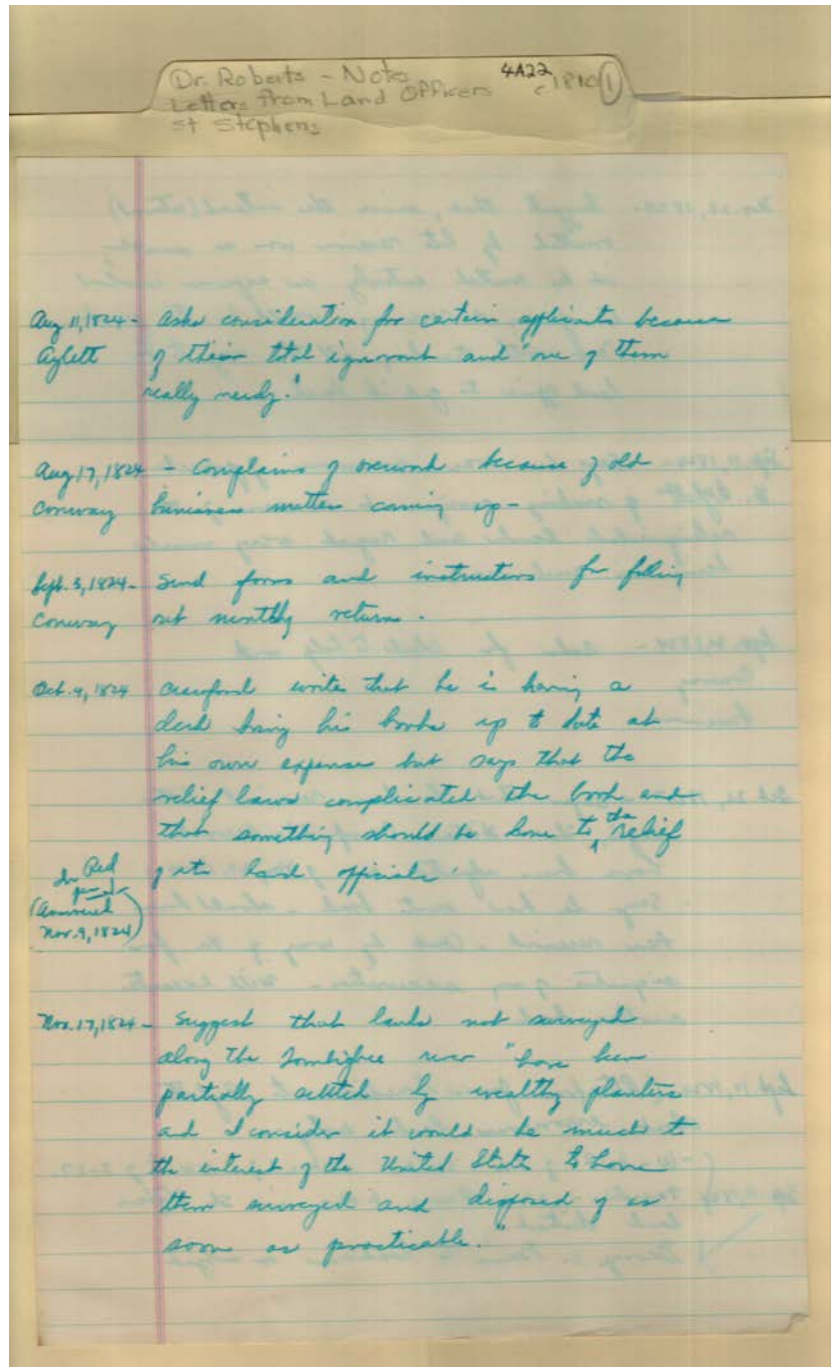 Dr. Roberts - Notes 4A22 c1810 (1)
Letters from Land Officers
St Stephens
Aug 11, 1824 - asks consideration for certain applicants because
Aylett of their total ignorant and "one of them
really needy."
Aug 17, 1824 - Complains of overwork because of old
Conway business matters coming up -
Sept. 3, 1824 - Send forms and instructions for filling
Conway out monthly returns.
Oct. 9, 1824 Crawford writes that he is having a
clerk bring his books up to date at
his own expense but says that the
relief laws complicated the book and
that something should be done to the relief
of its land officials.
In Red
pencil
(Answered
Nov. 9, 1824)
Nov. 17, 1824 - Suggest that lands not surveyed
along the Tombigbee river "have been
partially settled by wealthy planters
and I consider it would be much to
the interest of the United States to have
them surveyed and disposed of as
soon as practicable."